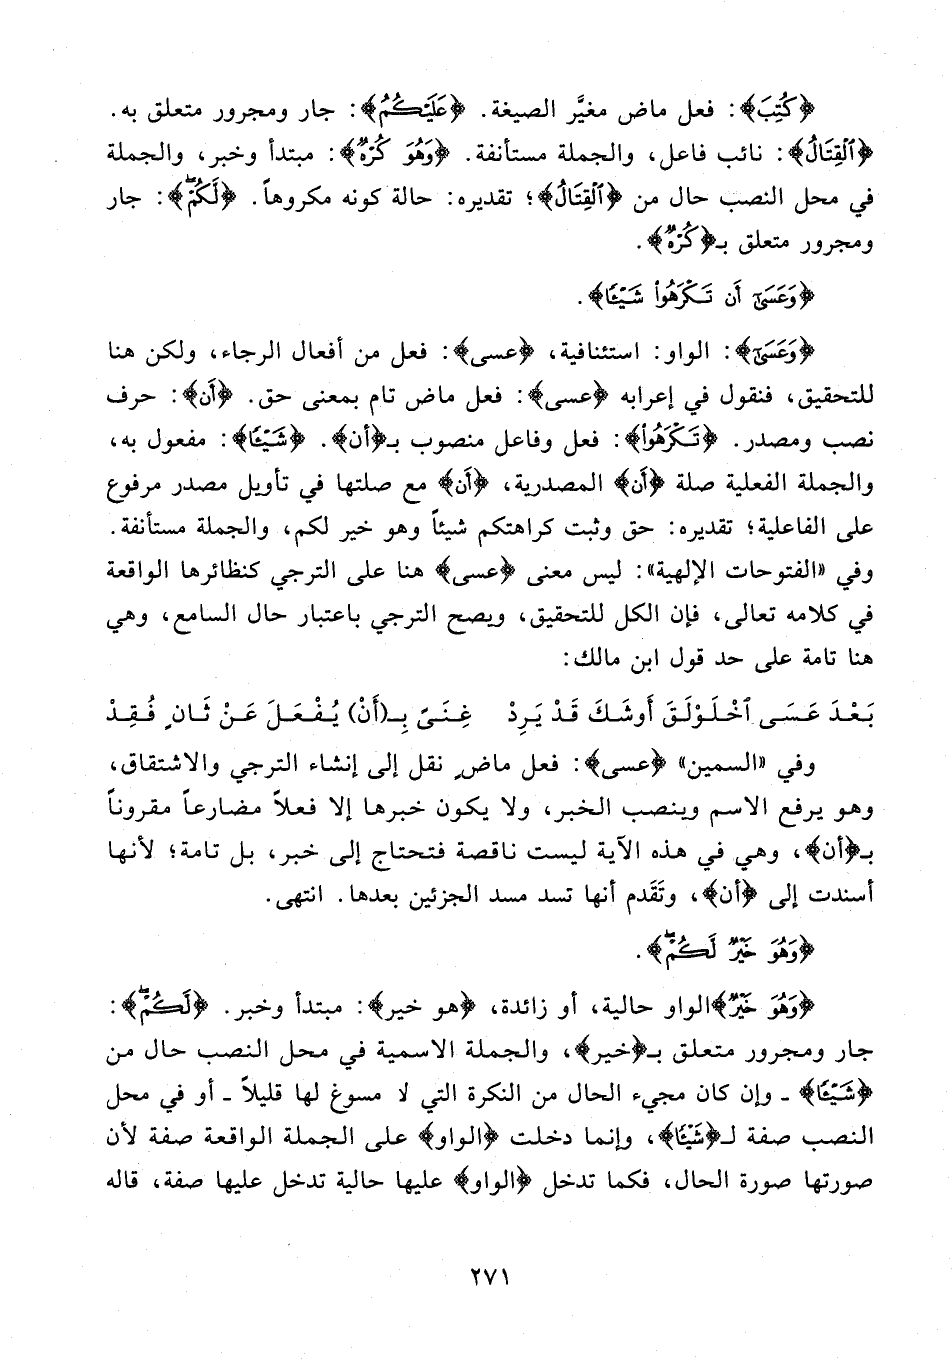 ﴿كُتِبَ﴾: فعل ماض مغيَّر الصيغة. ﴿عَلَيْكُمُ﴾: جار ومجرور متعلق به.
﴿ٱلْقِتَالُ﴾: نائب فاعل، والجملة مستأنفة. ﴿وَهُوَ كُرْهٌ﴾: مبتدأ وخبر، والجملة
في محل النصب حال من ﴿ٱلْقِتَالُ﴾؛ تقديره: حالة كونه مكروهاً. ﴿لَكُمْۖ﴾: جار
ومجرور متعلق بـ﴿كُرْهٌ﴾.
﴿وَعَسَىٰٓ أَن تَكْرَهُوا۟ شَيْـًٔا﴾.
﴿وَعَسَىٰٓ﴾: الواو: استئنافية، ﴿عسى﴾: فعل من أفعال الرجاء، ولكن هنا
للتحقيق، فنقول في إعرابه ﴿عسى﴾: فعل ماض تام بمعنى حق. ﴿أَن﴾: حرف
نصب ومصدر. ﴿تَكْرَهُوا۟﴾: فعل وفاعل منصوب بـ﴿أن﴾. ﴿شَيْـًٔا﴾: مفعول به،
والجملة الفعلية صلة ﴿أَن﴾ المصدرية، ﴿أَن﴾ مع صلتها في تأويل مصدر مرفوع
على الفاعلية؛ تقديره: حق وثبت كراهتكم شيئاً وهو خير لكم، والجملة مستأنفة.
وفي «الفتوحات الإلهية»: ليس معنى ﴿عسى﴾ هنا على الترجي كنظائرها الواقعة
في كلامه تعالى، فإن الكل للتحقيق، ويصح الترجي باعتبار حال السامع، وهي
هنا تامة على حد قول ابن مالك:
بَعْدَ عَسَى ٱخْلَوْلَقَ أَوشَكَ قَدْ يَرِدْ غِنَىً بِـ(أَنْ) يُفْعَلَ عَنْ ثَانٍ فُقِدْ
وفي «السمين» ﴿عسى﴾: فعل ماضٍ نقل إلى إنشاء الترجي والاشتقاق،
وهو يرفع الاسم وينصب الخبر، ولا يكون خبرها إلا فعلاً مضارعاً مقروناً
بـ﴿أن﴾، وهي في هذه الآية ليست ناقصة فتحتاج إلى خبر، بل تامة؛ لأنها
أسندت إلى ﴿أن﴾، وتَقَدم أنها تسد مسد الجزئين بعدها. انتهى.
﴿وَهُوَ خَيْرٌ لَكُمْۖ﴾.
﴿وَهُوَ خَيْرٌ﴾الواو حالية، أو زائدة، ﴿هو خير﴾: مبتدأ وخبر. ﴿لَكُمْۖ﴾:
جار ومجرور متعلق بـ﴿خير﴾، والجملة الاسمية في محل النصب حال من
﴿شَيْـًٔا﴾ ـ وإن كان مجيء الحال من النكرة التي لا مسوغ لها قليلاً ـ أو في محل
النصب صفة لـ﴿شَيْـًٔا﴾، وإنما دخلت ﴿الواو﴾ على الجملة الواقعة صفة لأن
صورتها صورة الحال، فكما تدخل ﴿الواو﴾ عليها حالية تدخل عليها صفة، قاله
٢٧١